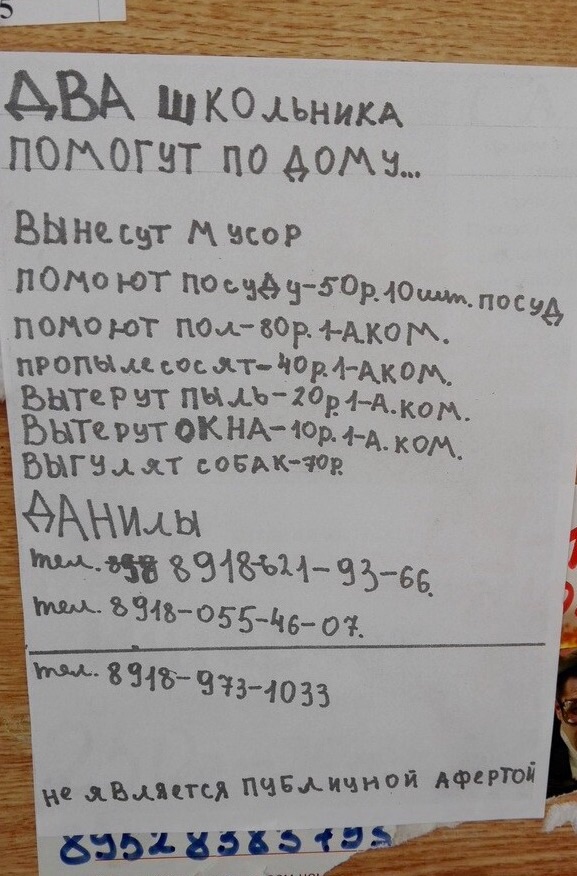 5
ДВА ШКОЛЬНИКА
ПОМОГУТ ПО ДОМУ...
ВЫНЕСУТ МУСОР
ПОМОЮТ ПОСУДУ-50р. 10шт. ПОСУД
ПОМОЮТ ПОЛ-80р. 1-А КОМ.
ПРОПЫЛЕСОСЯТ-40р. 1-А КОМ.
ВЫТЕРУТ ПЫЛЬ-20р. 1-А. КОМ.
ВЫТЕРУТ ОКНА-10р. 1-А. КОМ.
ВЫГУЛЯТ СОБАК-70р.
ДАНИЛЫ
тел. 8918-621-93-66.
тел. 8918-055-46-07.
тел. 8918-973-1033
НЕ ЯВЛЯЕТСЯ ПУБЛИЧНОЙ АФЕРТОЙ